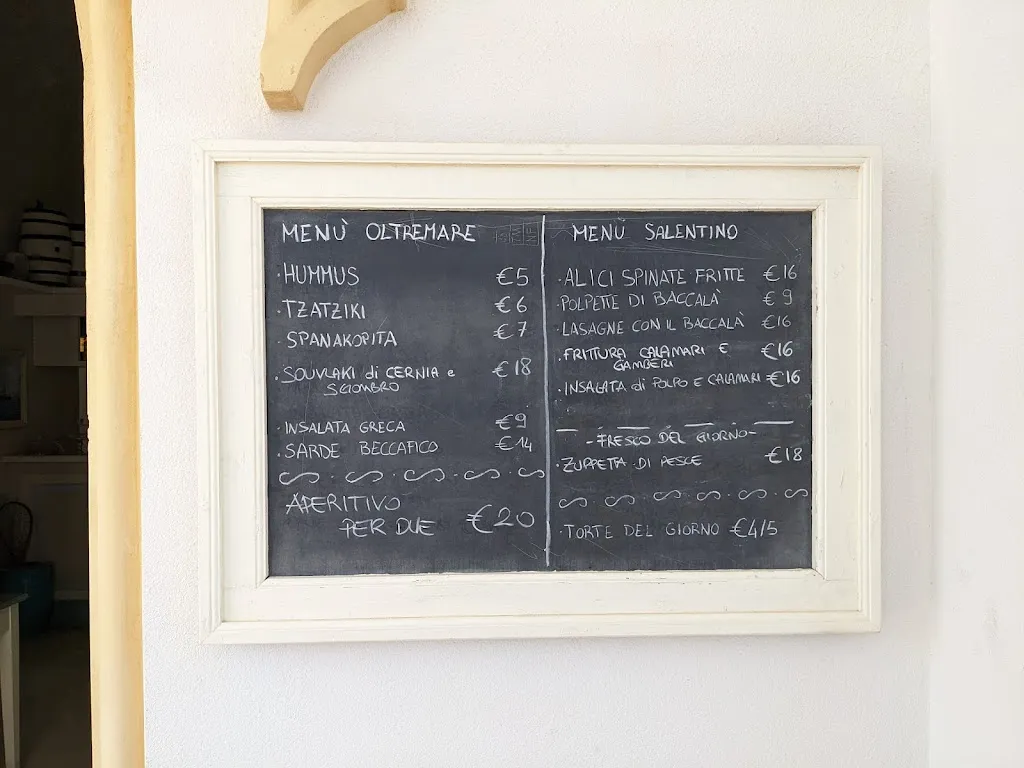 MENÙ OLTREMARE
·HUMMUS €5
·TZATZIKI €6
·SPANAKOPITA €7
·SOUVLAKI di CERNIA e €18
SGOMBRO
·INSALATA GRECA €9
·SARDE BECCAFICO €14
APERITIVO
PER DUE €20
MENÙ SALENTINO
·ALICI SPINATE FRITTE €16
·POLPETTE DI BACCALÀ €9
·LASAGNE CON IL BACCALÀ €16
·FRITTURA CALAMARI E €16
GAMBERI
·INSALATA di POLPO E CALAMARI €16
-FRESCO DEL GIORNO-
·ZUPPETTA DI PESCE €18
·TORTE DEL GIORNO €4/5